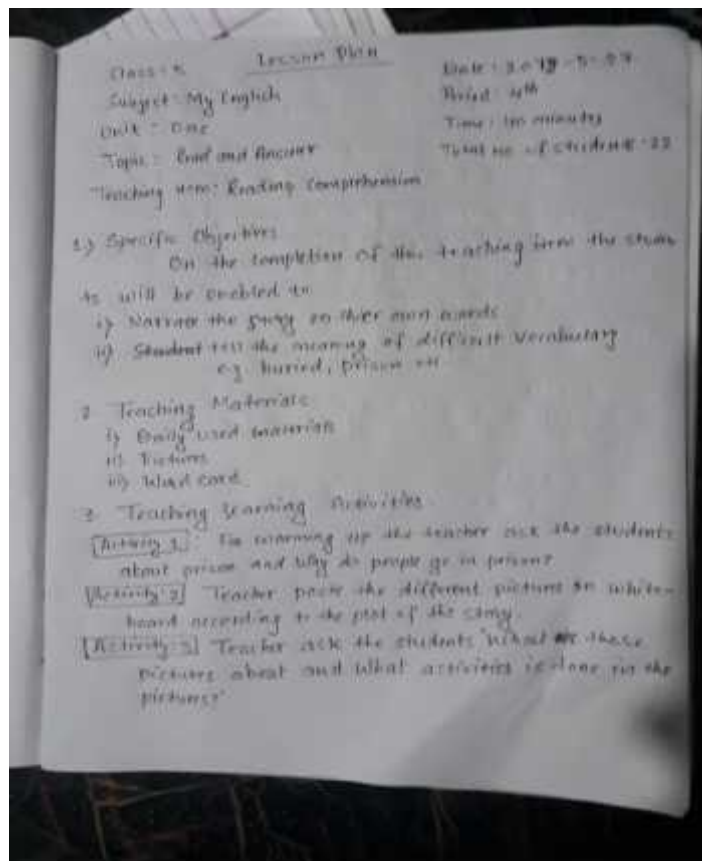 Lesson Plan
Class: 5
Subject: My English
Unit: One
Topic: Read and Answer
Teaching item: Reading Comprehension
Date: 2079-5-
Period: 4th
Time: minutes
Total no. of students:
1.) Specific Objectives
On the completion of this teaching item the studen
ts will be enabled to
i) Narrate the story on their own words
ii) Student tell the meaning of difficult vocabulary
e.g. buried, prison
2. Teaching Materials
i) Daily used materials
ii) Pictures
iii) Word card
3. Teaching Learning Activities
Activity 1: For warming up the teacher ask the students
about prison and why do people go in prison?
Activity-2 Teacher paste the different pictures on white-
board according to the plot of the story.
Activity-3 Teacher ask the students 'What are these
pictures about and what activities is done in the
pictures?'